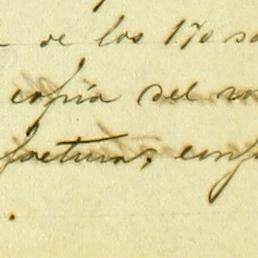 de los 170 sa
copia del
factura; conf